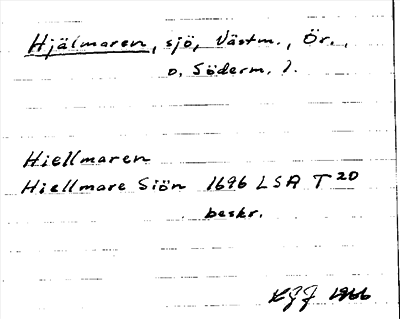 Hjälmaren, sjö, Västm., Ör.,
o. Söderm. l.
Hiellmaren
Hiellmare Siön 1696 LSA T 20
beskr.
1966